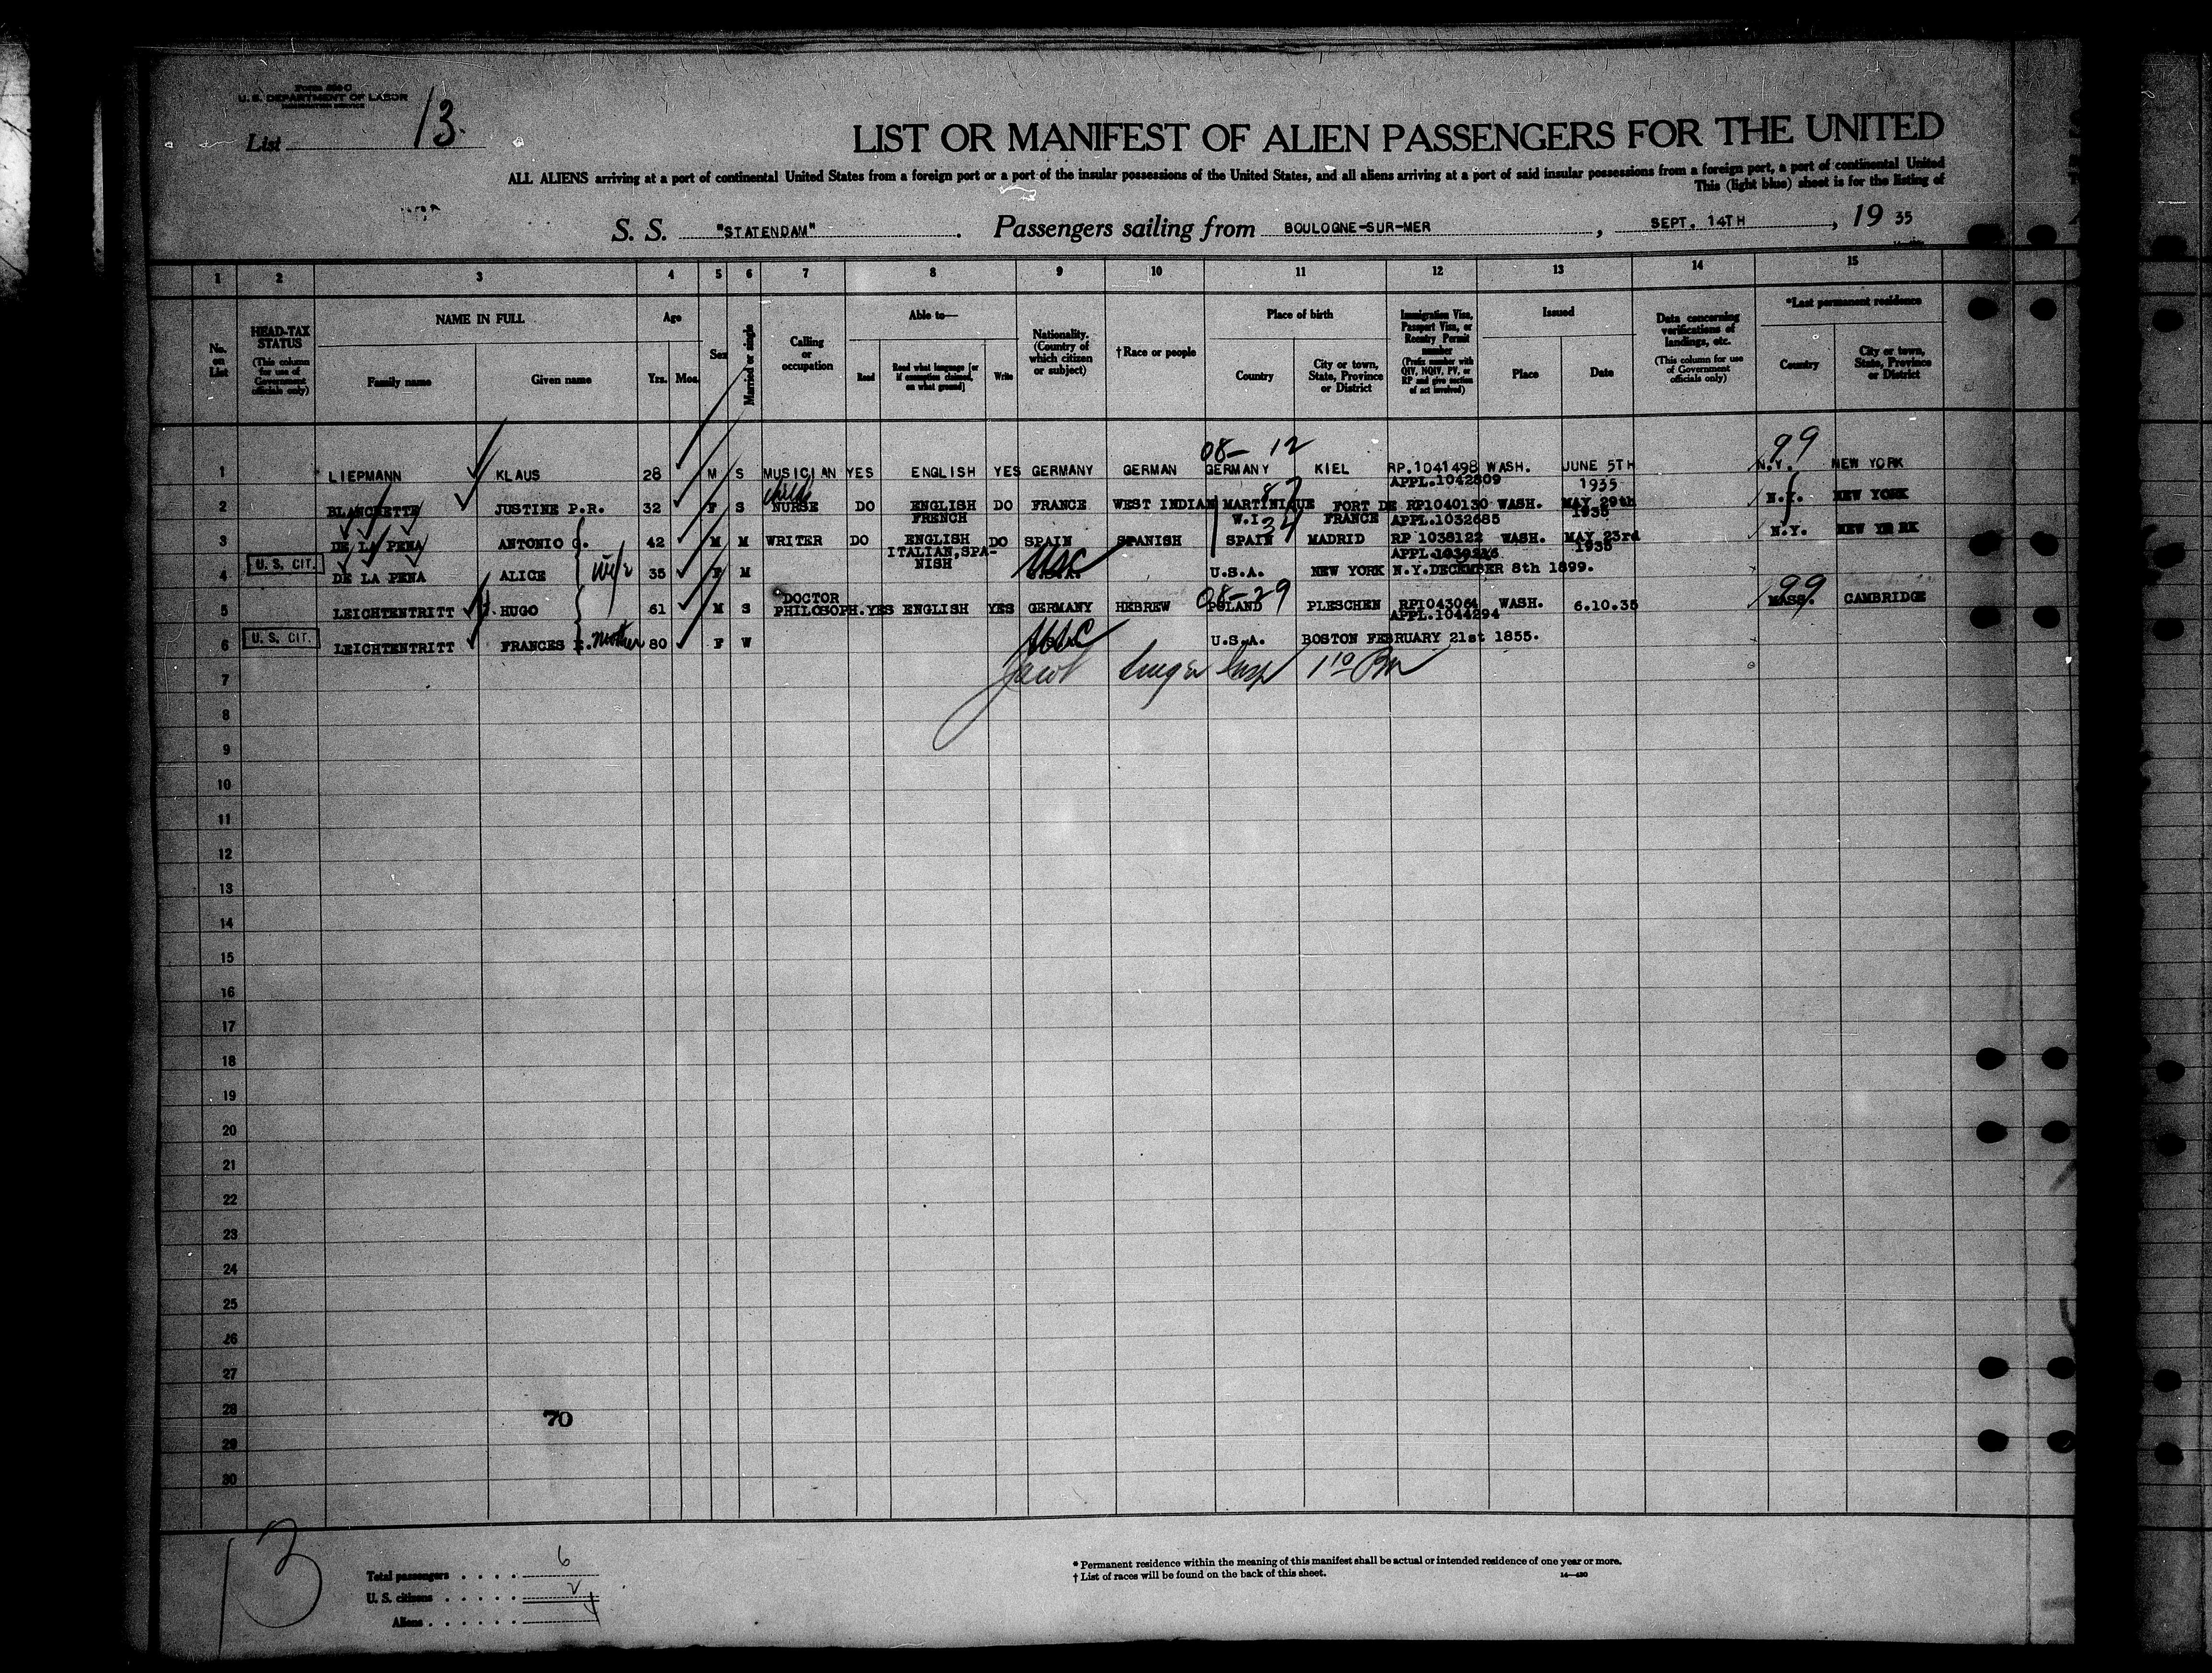 Form 500 C
U. S. DEPARTMENT OF LABOR
IMMIGRATION SERVICE
List 13.
LIST OR MANIFEST OF ALIEN PASSENGERS FOR THE UNITED
ALL ALIENS arriving at a port of continental United States from a foreign port or a port of the insular possessions of the United States, and all aliens arriving at a port of said insular possessions from a foreign port, a port of continental United
This (light blue) sheet is for the listing of
S. S. "STATENDAM". Passengers sailing from BOULOGNE-SUR-MER, SEPT. 14TH, 19 35
1 2 3 4 5 6 7 8 9 10 11 12 13 14 15
No. on List
HEAD-TAX STATUS (This column for use of Government officials only)
NAME IN FULL
Family name Given name
Age
Yrs. Mos.
Sex
Married or single
Calling or occupation
Able to—
Read Read what language [or if exemption claimed, on what ground] Write
Nationality. (Country of which citizen or subject)
†Race or people
Place of birth
Country City or town, State, Province or District
Immigration Visa, Passport Visa, or Reentry Permit number (Prefix number with QIV, NQIV, PV, or RP and give section of act involved)
Issued
Place Date
Data concerning verifications of landings, etc. (This column for use of Government officials only)
*Last permanent residence
Country City or town, State, Province or District
08- 12 99
1 LIEPMANN KLAUS 28 M S MUSICIAN YES ENGLISH YES GERMANY GERMAN GERMANY KIEL RP.1041498 WASH. JUNE 5TH N.Y. NEW YORK
APPL.1042809 1935
childs
2 BLANCHETTE JUSTINE P.R. 32 F S NURSE DO ENGLISH DO FRANCE WEST INDIAN MARTINIQUE FORT DE RP1040130 WASH. MAY 29th N.Y. NEW YORK
FRENCH W.I. FRANCE APPL.1032685 1935
34
3 DE LA PENA ANTONIO G. 42 M M WRITER DO ENGLISH DO SPAIN SPANISH SPAIN MADRID RP 1038122 WASH. MAY 23rd N.Y. NEW YO RK
ITALIAN,SPA- 1935
NISH
U. S. CIT.
4 DE LA PENA ALICE wife 35 F M USC U.S.A. NEW YORK N.Y.DECEMBER 8th 1899.
08-29 99
DOCTOR
5 LEICHTENTRITT HUGO 61 M S PHILOSOPH. YES ENGLISH YES GERMANY HEBREW POLAND PLESCHEN RP1043064 WASH. 6.10.35 MASS. CAMBRIDGE
APPL.1044294
U. S. CIT.
6 LEICHTENTRITT FRANCES mother 80 F W USC U.S.A. BOSTON FEBRUARY 21st 1855.
7 Insp 1 10 PM
8
9
10
11
12
13
14
15
16
17
18
19
20
21
22
23
24
25
26
27
28 70
29
30
13
Total passengers . . . . 6
U. S. citizens . . . . . 2
Aliens . . . . . . 4
* Permanent residence within the meaning of this manifest shall be actual or intended residence of one year or more.
† List of races will be found on the back of this sheet.
14—430